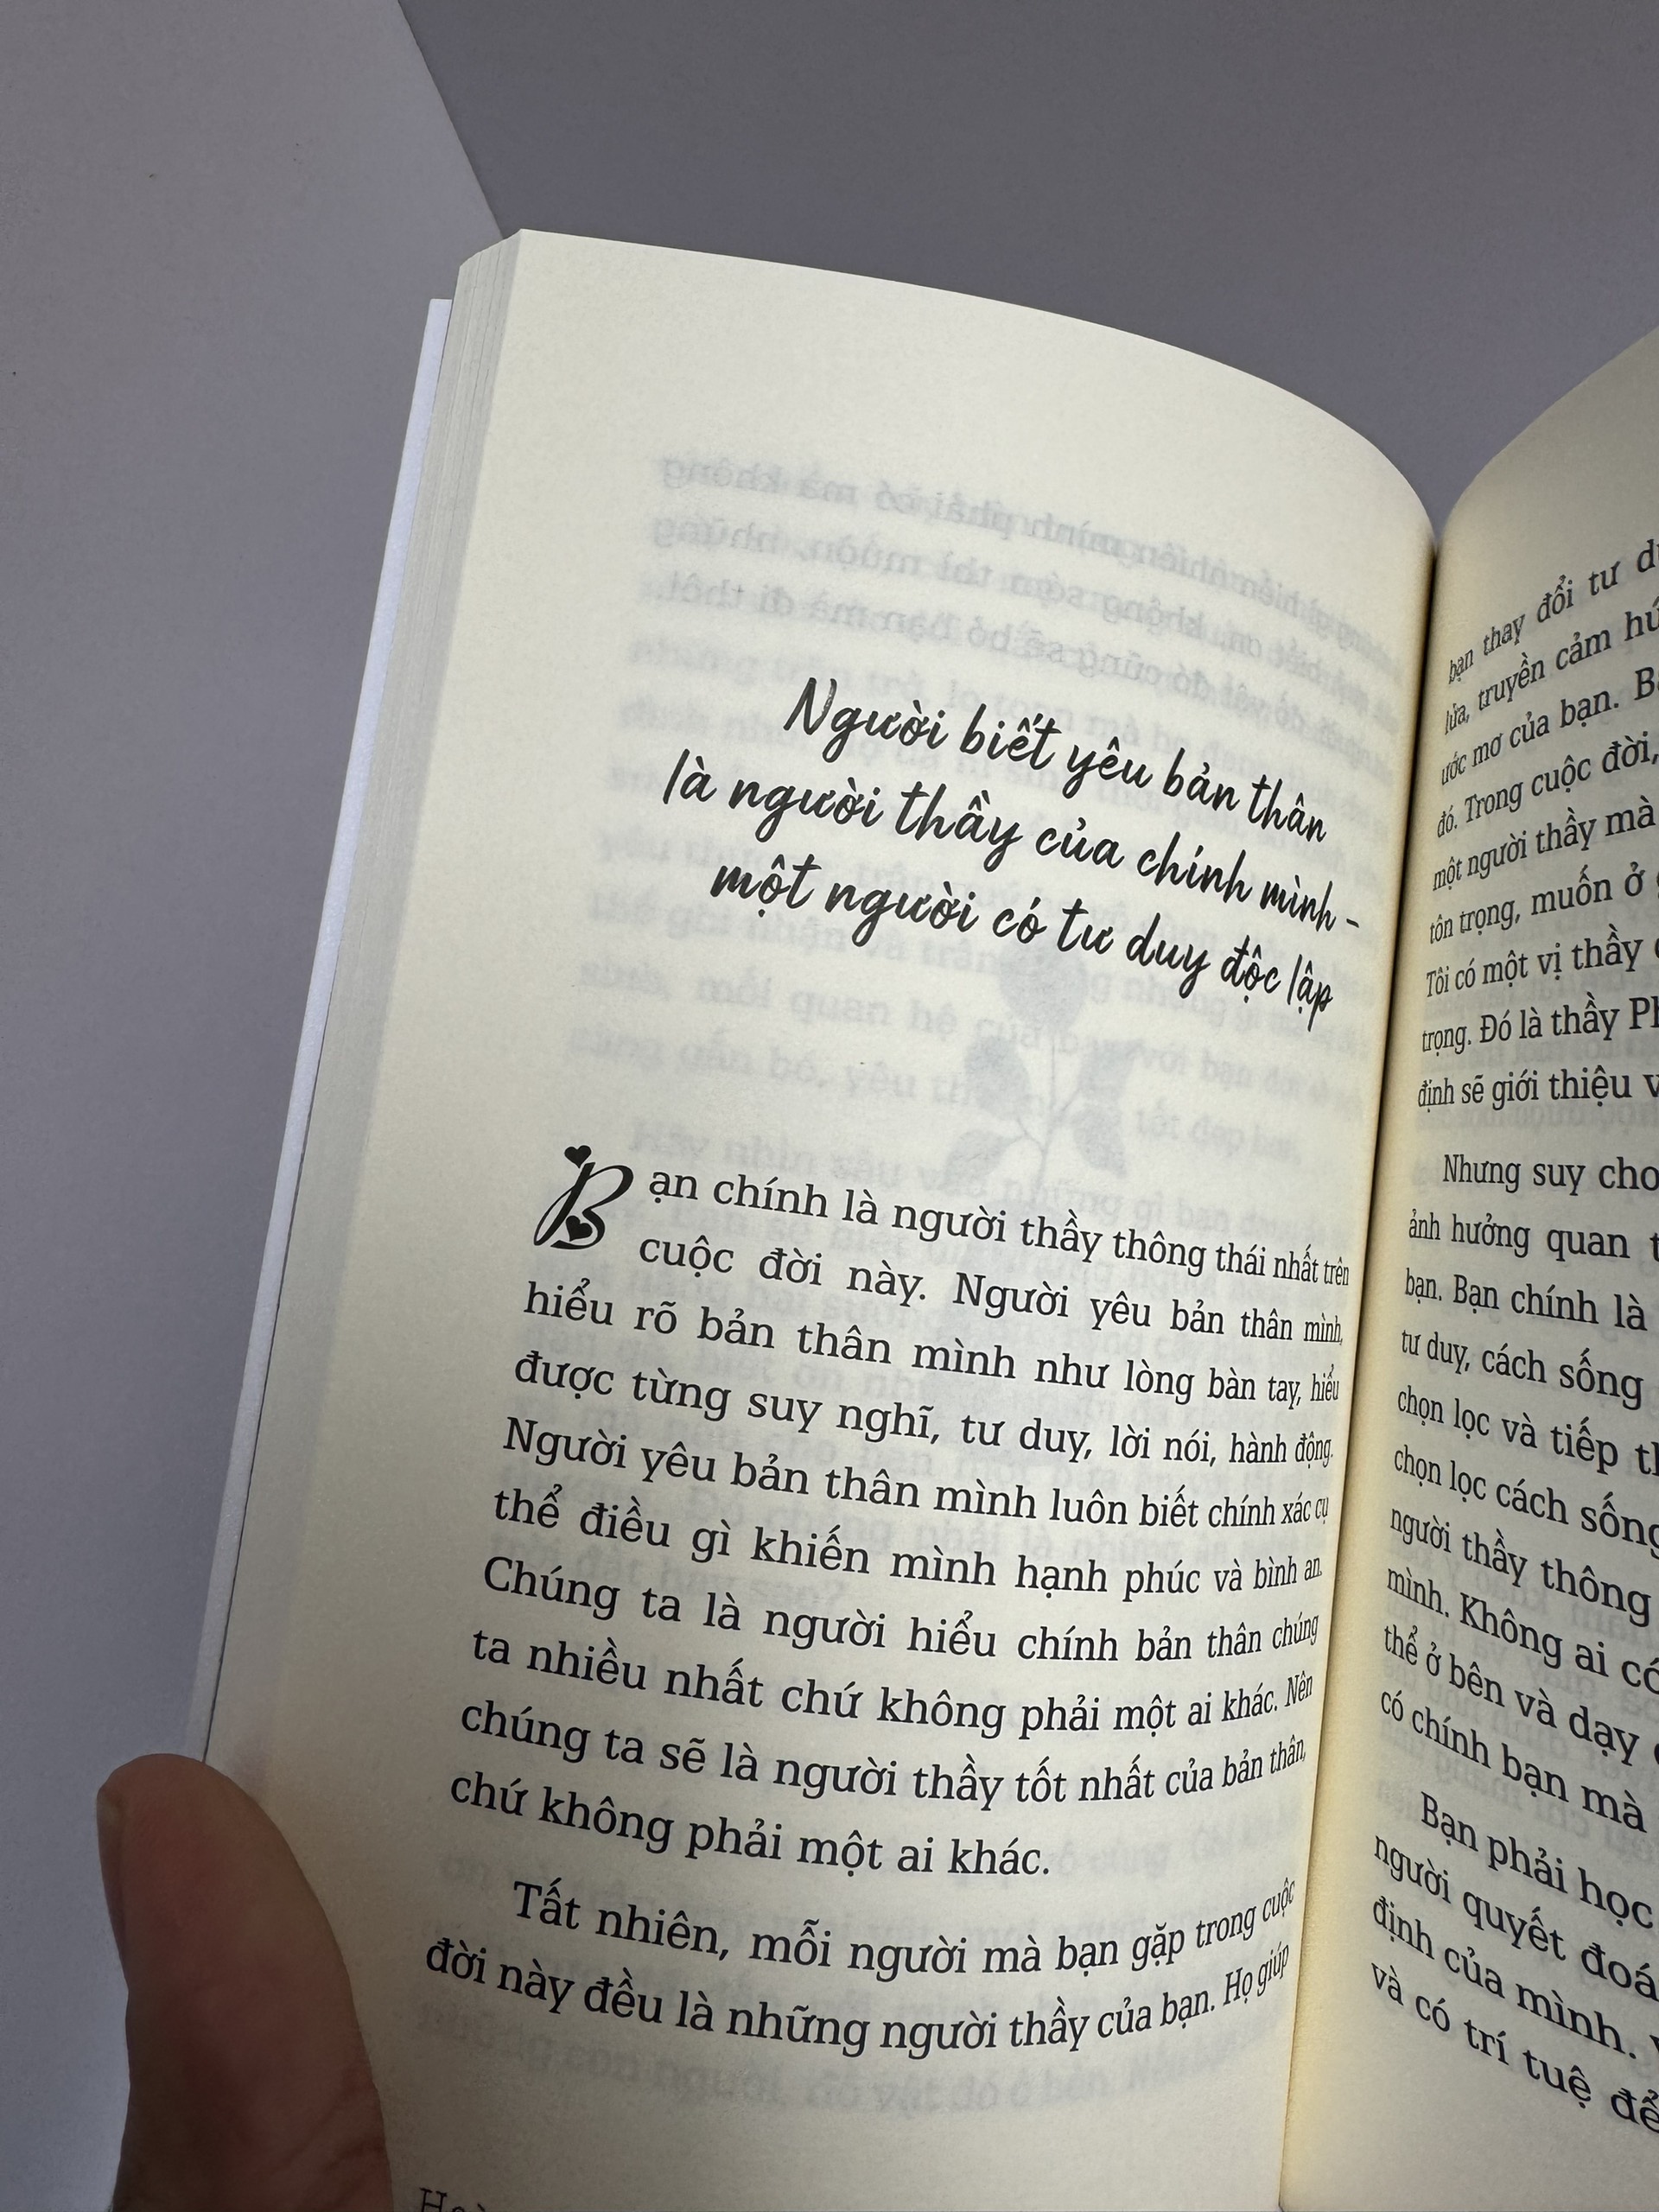 Người biết yêu bản thân
là người thầy của chính mình -
một người có tư duy độc lập
Bạn chính là người thầy thông thái nhất trên
cuộc đời này. Người yêu bản thân mình,
hiểu rõ bản thân mình như lòng bàn tay, hiểu
được từng suy nghĩ, tư duy, lời nói, hành động.
Người yêu bản thân mình luôn biết chính xác cụ
thể điều gì khiến mình hạnh phúc và bình an.
Chúng ta là người hiểu chính bản thân chúng
ta nhiều nhất chứ không phải một ai khác. Nên
chúng ta sẽ là người thầy tốt nhất của bản thân,
chứ không phải một ai khác.
Tất nhiên, mỗi người mà bạn gặp trong cuộc
đời này đều là những người thầy của bạn. Họ giúp
bạn thay đổi tư
lửa, truyền cảm
ước mơ của bạn.
đó. Trong cuộc đời,
một người thầy mà
tôn trọng, muốn ở
Tôi có một vị thầy
trọng. Đó là thầy
định sẽ giới thiệu
Nhưng suy cho
ảnh hưởng quan
bạn. Bạn chính là
tư duy, cách sống
chọn lọc và tiếp
chọn lọc cách sống
người thầy thông
mình. Không ai có
thể ở bên và dạy
có chính bạn mà
Bạn phải học
người quyết đoá
định của mình.
và có trí tuệ để